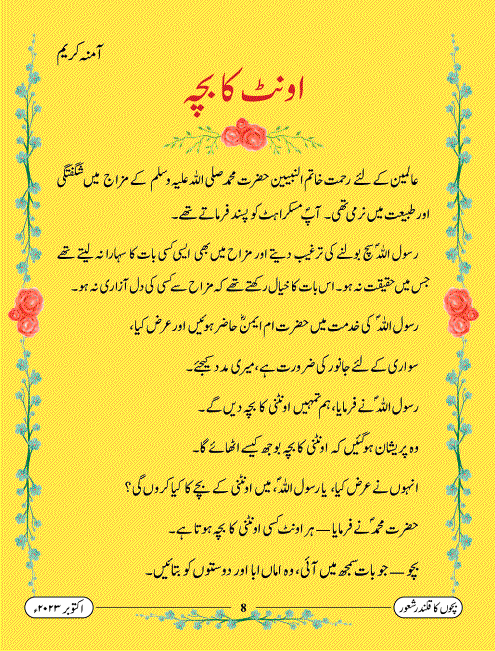 آمنہ کریم
اونٹ کا بچہ
عالمین کے لئے رحمت خاتم النبیین حضرت محمد صلی اللہ علیہ وسلم کے مزاج میں شگفتگی
اور طبیعت میں نرمی تھی۔ آپؐ مسکراہٹ کو پسند فرماتے تھے۔
رسول اللہؐ سچ بولنے کی ترغیب دیتے اور مزاح میں بھی ایسی کسی بات کا سہارا نہ لیتے تھے
جس میں حقیقت نہ ہو۔ اس بات کا خیال رکھتے تھے کہ مزاح سے کسی کی دل آزاری نہ ہو۔
رسول اللہؐ کی خدمت میں حضرت ام ایمنؓ حاضر ہوئیں اور عرض کیا،
سواری کے لئے جانور کی ضرورت ہے، میری مدد کیجئے۔
رسول اللہؐ نے فرمایا، ہم تمہیں اونٹنی کا بچہ دیں گے۔
وہ پریشان ہوگئیں کہ اونٹنی کا بچہ بوجھ کیسے اٹھائے گا۔
انہوں نے عرض کیا، یا رسول اللہؐ، میں اونٹنی کے بچے کا کیا کروں گی؟
حضرت محمدؐ نے فرمایا — ہر اونٹ کسی اونٹنی کا بچہ ہوتا ہے۔
بچو — جو بات سمجھ میں آئی، وہ اماں ابا اور دوستوں کو بتائیں۔
بچوں کا قلندر شعور
8
اکتوبر ۲۰۲۳ء